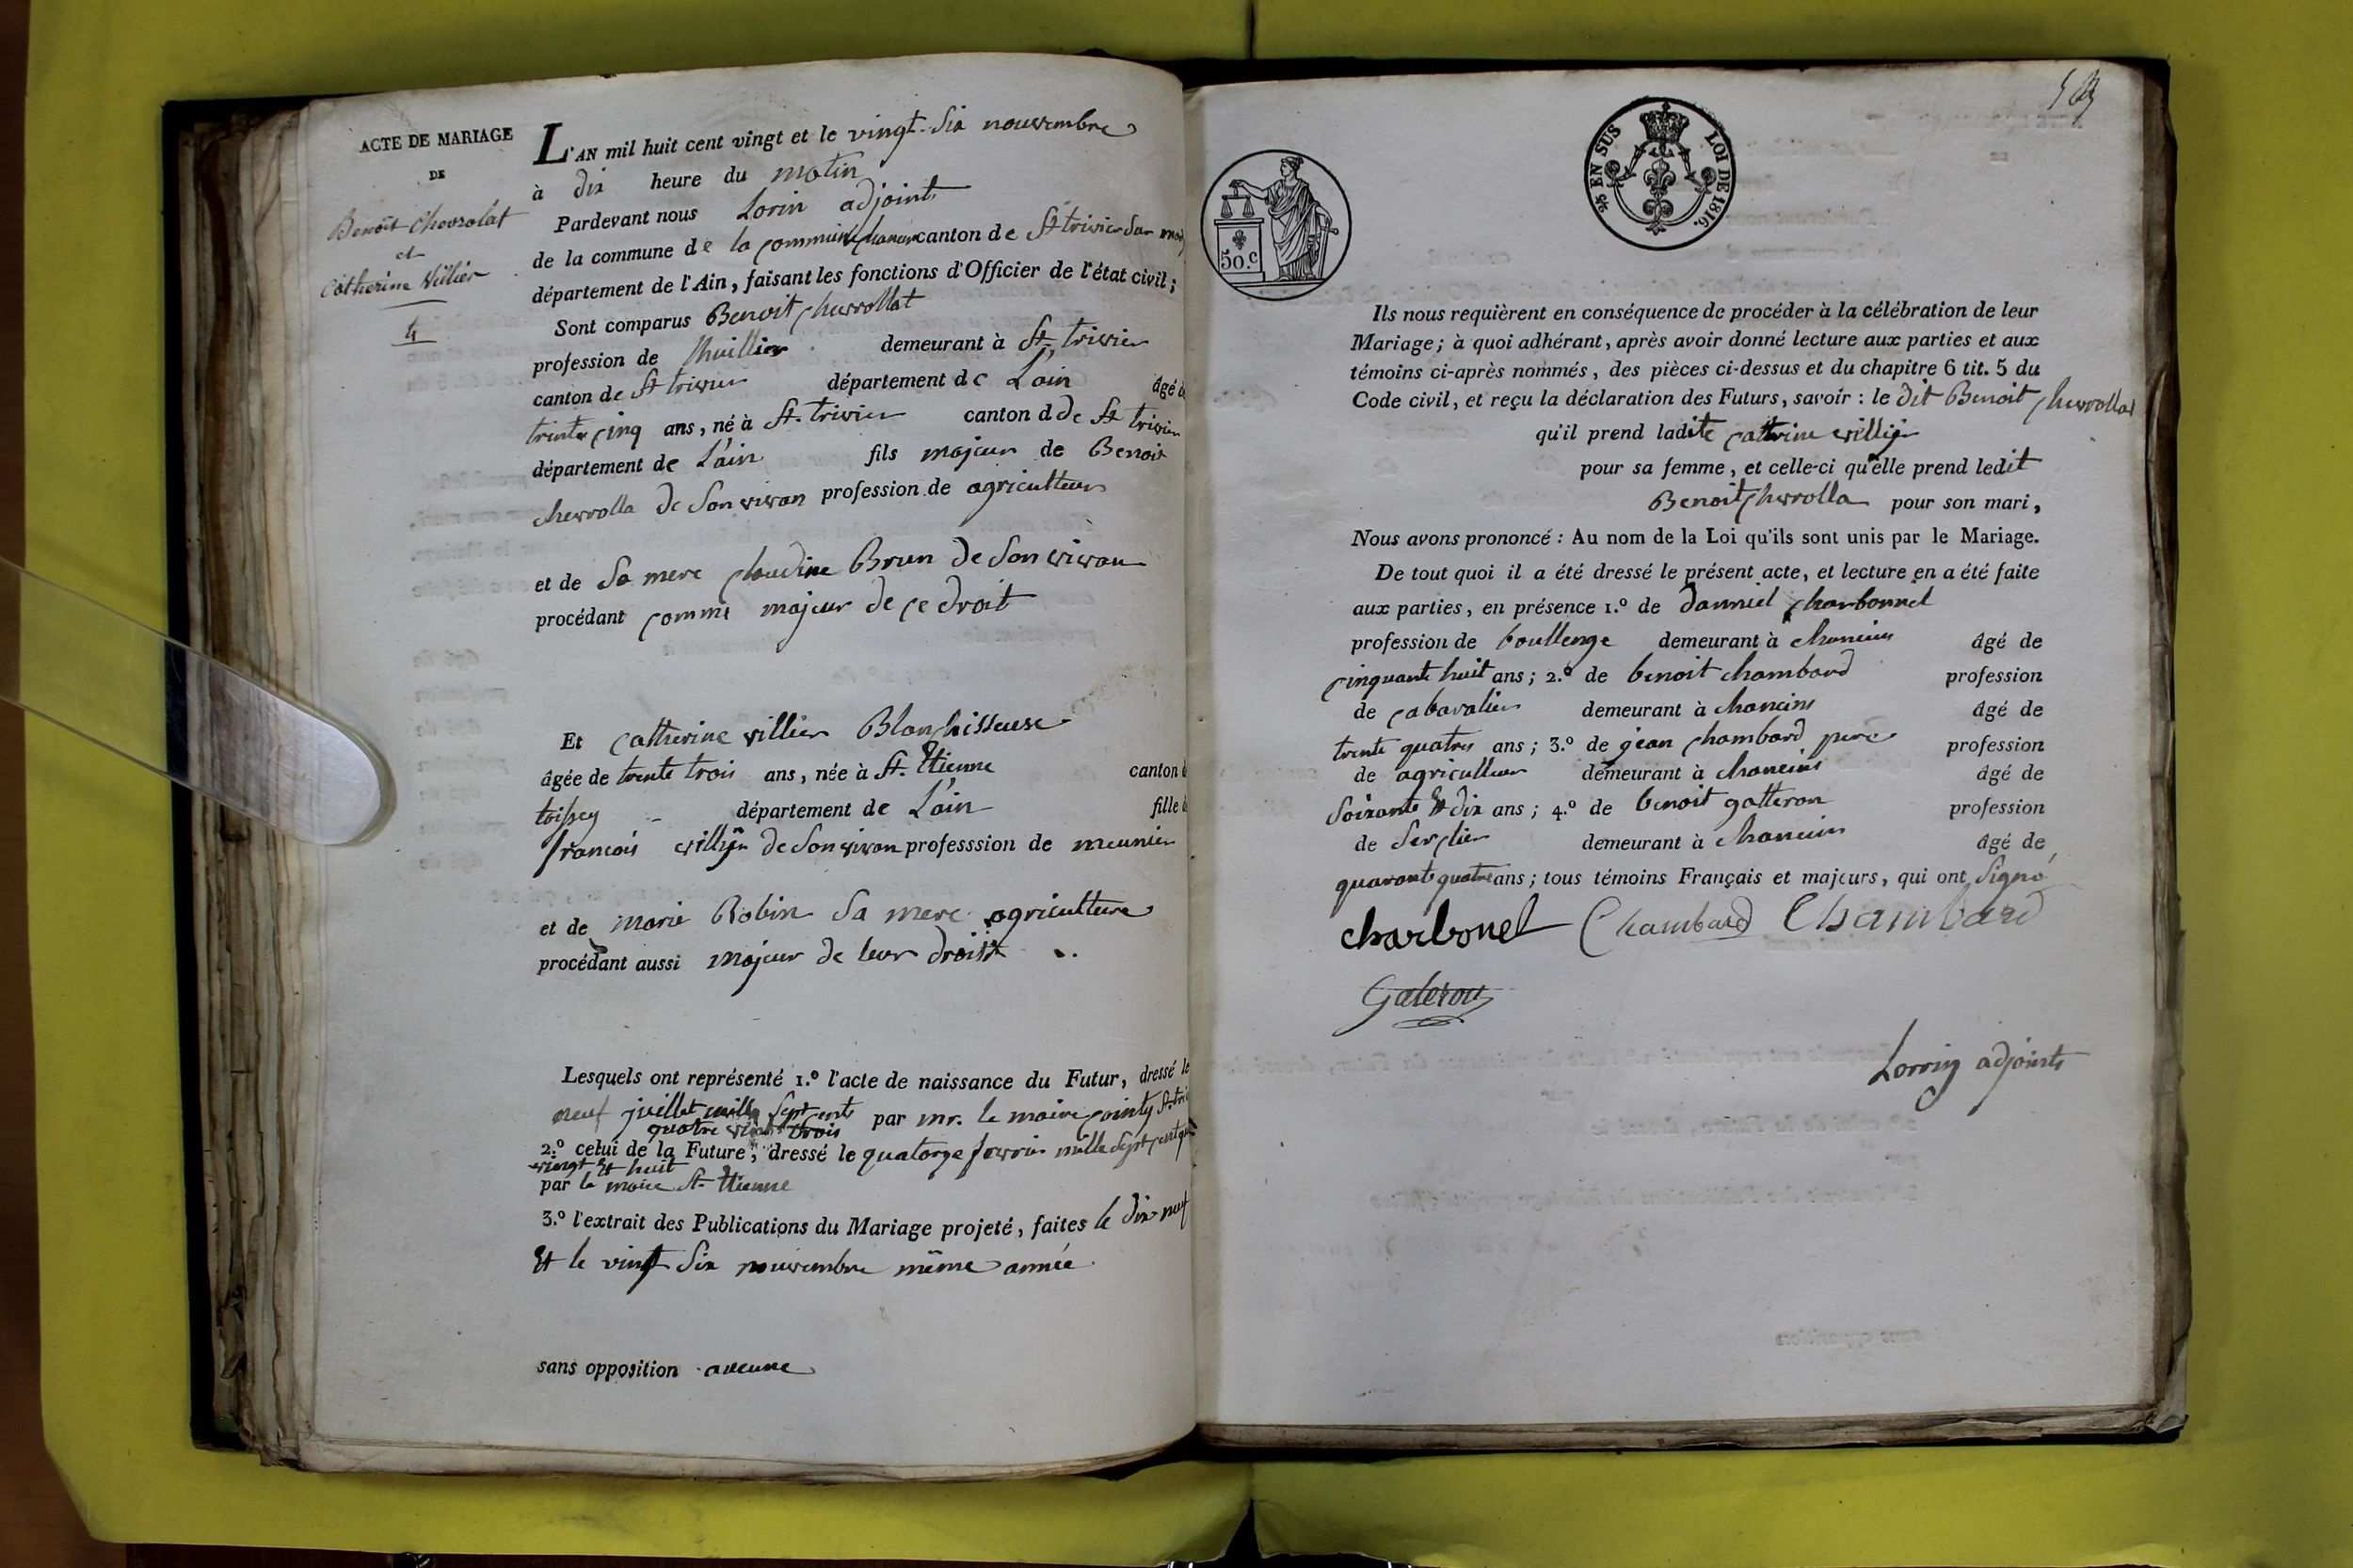 ACTE DE MARIAGE
DE
Benoit Chevrolat
et
Catherine Villier
4
L'AN mil huit cent vingt et le vingt-six nouvembre
à dix heure du matin
Pardevant nous Lorin adjoint
de la commune de la commune canton de St trivier sur
département de l'Ain, faisant les fonctions d'Officier de l'état civil;
Sont comparus Benoit chevrollat
profession de demeurant à St. trivier
canton de St trivier département de L'ain âgé
trente cinq ans, né à St. trivier canton d de St trivier
département de L'ain fils majeur de Benoit
chevrolla de Son vivan profession de agriculteur
et de Sa mere claudine Brun de Son vivan
procédant comme majeur de ce droit
Et catherine villier Blanchisseuse
âgée de trente trois ans, née à St. Etienne canton
toissey département de L'ain fille
francois de Son vivan professsion de meunier
et de marie Robin Sa mere agriculture
procédant aussi majeur de leur droits
Lesquels ont représenté 1.º l'acte de naissance du Futur, dressé le
neuf juillet mille Sept cents par mr. le maire St.
quatre trois
2.º celui de la Future, dressé le quatorze mille Sept cent
vingt Et huit
par le maire St. Etienne
3.º l'extrait des Publications du Mariage projeté, faites le dix neuf
Et le vingt Six nouvembre même année
sans opposition aucune
EN SUS LOI DE 1816.
50.c
Ils nous requièrent en conséquence de procéder à la célébration de leur
Mariage; à quoi adhérant, après avoir donné lecture aux parties et aux
témoins ci-après nommés, des pièces ci-dessus et du chapitre 6 tit. 5 du
Code civil, et reçu la déclaration des Futurs, savoir : le dit Benoit chevrollat
qu'il prend ladite
pour sa femme, et celle-ci qu'elle prend ledit
Benoit chevrolla pour son mari,
Nous avons prononcé : Au nom de la Loi qu'ils sont unis par le Mariage.
De tout quoi il a été dressé le présent acte, et lecture en a été faite
aux parties, en présence 1.º de danniel charbonnel
profession de boullenge demeurant à chaneins âgé de
cinquante huit ans; 2.º de benoit chambard profession
de cabaratier demeurant à chaneins âgé de
trente quatres ans; 3.º de jean chambard pere profession
de agriculteur demeurant à chaneins âgé de
Soixante Et dix ans; 4.º de benoit galteron profession
de demeurant à chaneins âgé de
quarante quatre ans; tous témoins Français et majeurs, qui ont Signé
charbonel Chambard Chambard
Galeron
Lorrin adjoint